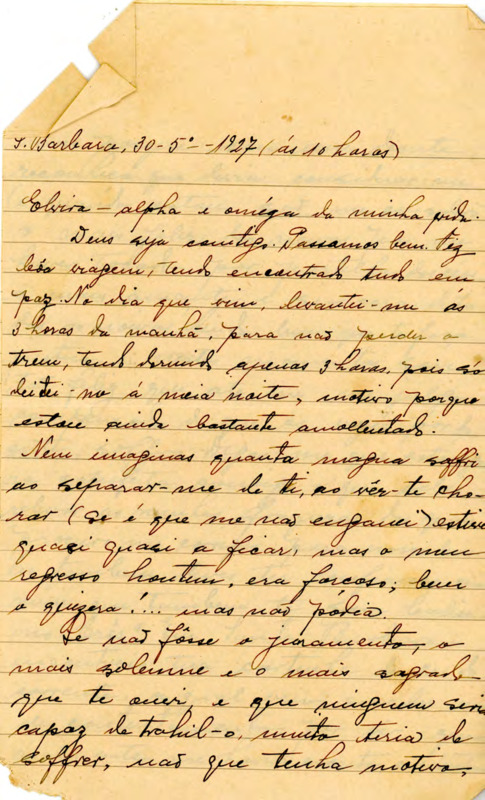 S. Barbara, 30-5º--1927 (ás 10 horas)
Elvira - alpha e oméga da minha vida.
Deus seja comtigo. Passamos bem. Fiz
bôa viagem, tendo encontrado tudo em
paz. No dia que vim, levantei-me ás
3 horas da manhã, para não perder o
trem, tendo dormido apenas 3 horas, pois só
deitei-me á meia noite, motivo porque
estou ainda bastante amollentado.
Nem imaginas quanta magua soffri
ao separar-me de ti, ao vêr-te cho-
rar (se é que me não enganei) estive
quasi quasi a ficar, mas o meu
regresso hontem, era forçoso; bem
o quizera!... mas não pódia.
Se não fôsse o juramento, o
mais solemne e o mais sagrado
que te ouvi, e que ninguem seria
capaz de trahil-o, muito teria de
soffrer, não que tenha motivo,